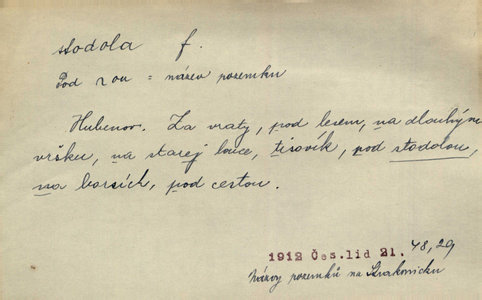 stodola f.
Pod ~ou = název pozemku
Hubenov. Za vraty, pod lesem, na dlouhým
vršku, na starej louce, tisovík, pod stodolou,
na borcích, pod cestou.
1912 Čes. lid 21. 48, 29
Názvy pozemků na Strakonicku